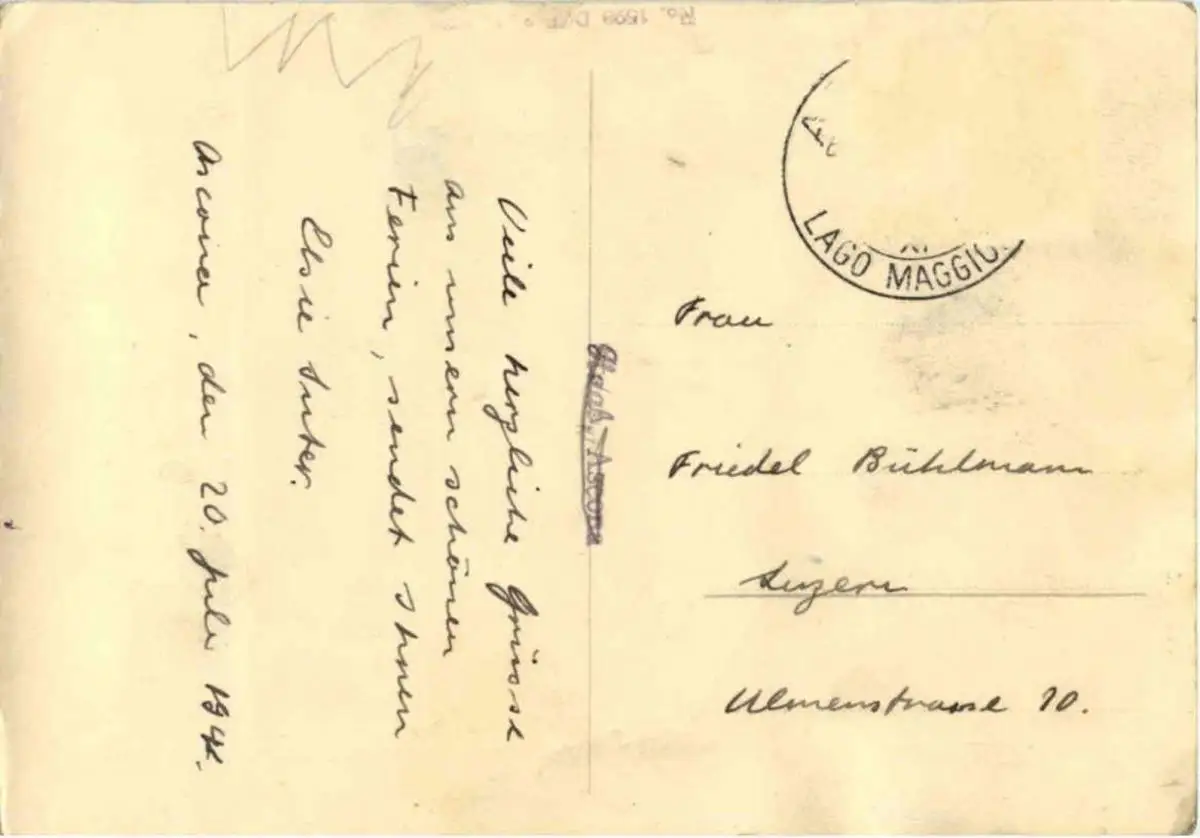 Viele herzliche Grüsse
aus unsern schönen
Ferien, sendet Ihnen
Elsie Suter.
Ascona, den 20. Juli 194
LAGO MAGGIO
Ascona
Frau
Friedel Bühlmann
Luzern
Ulmenstrasse 10.